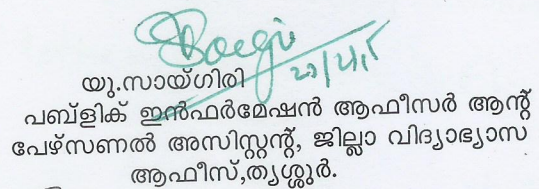 യു.സായ്ഗിരി
പബ്ളിക് ഇൻഫർമേഷൻ ആഫീസർ ആന്റ്
പേഴ്സണൽ അസിസ്റ്റന്റ്, ജില്ലാ വിദ്യാഭ്യാസ
ആഫീസ്,തൃശ്ശൂർ.